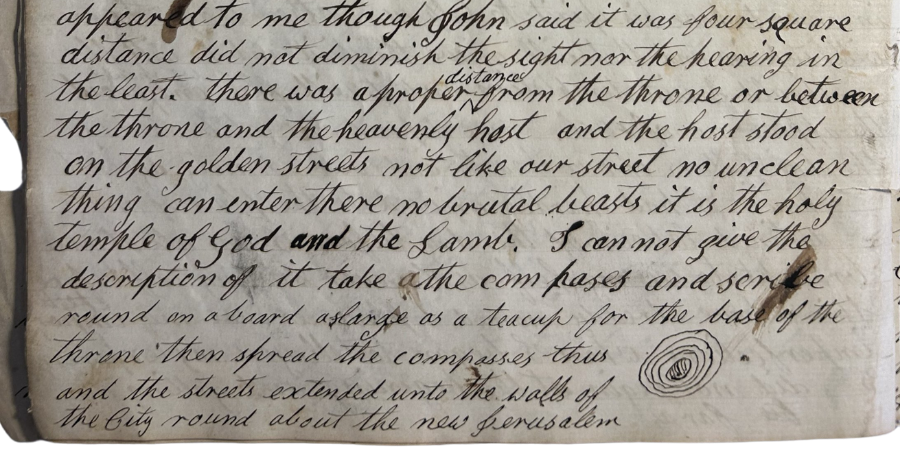 appeared to me though John said it was four square
distance did not diminish the sight nor the hearing in
the least. there was a proper distance from the throne or between
the throne and the heavenly host and the host stood
on the golden streets not like our street no unclean
thing can enter there no brutal beasts it is the holy
temple of God and the Lamb. I can not give the
description of it take a the compases and scribe
round on a board as large as a teacup for the base of the
throne then spread the compasses thus
and the streets extended unto the walls of
the City round about the new Jerusalem